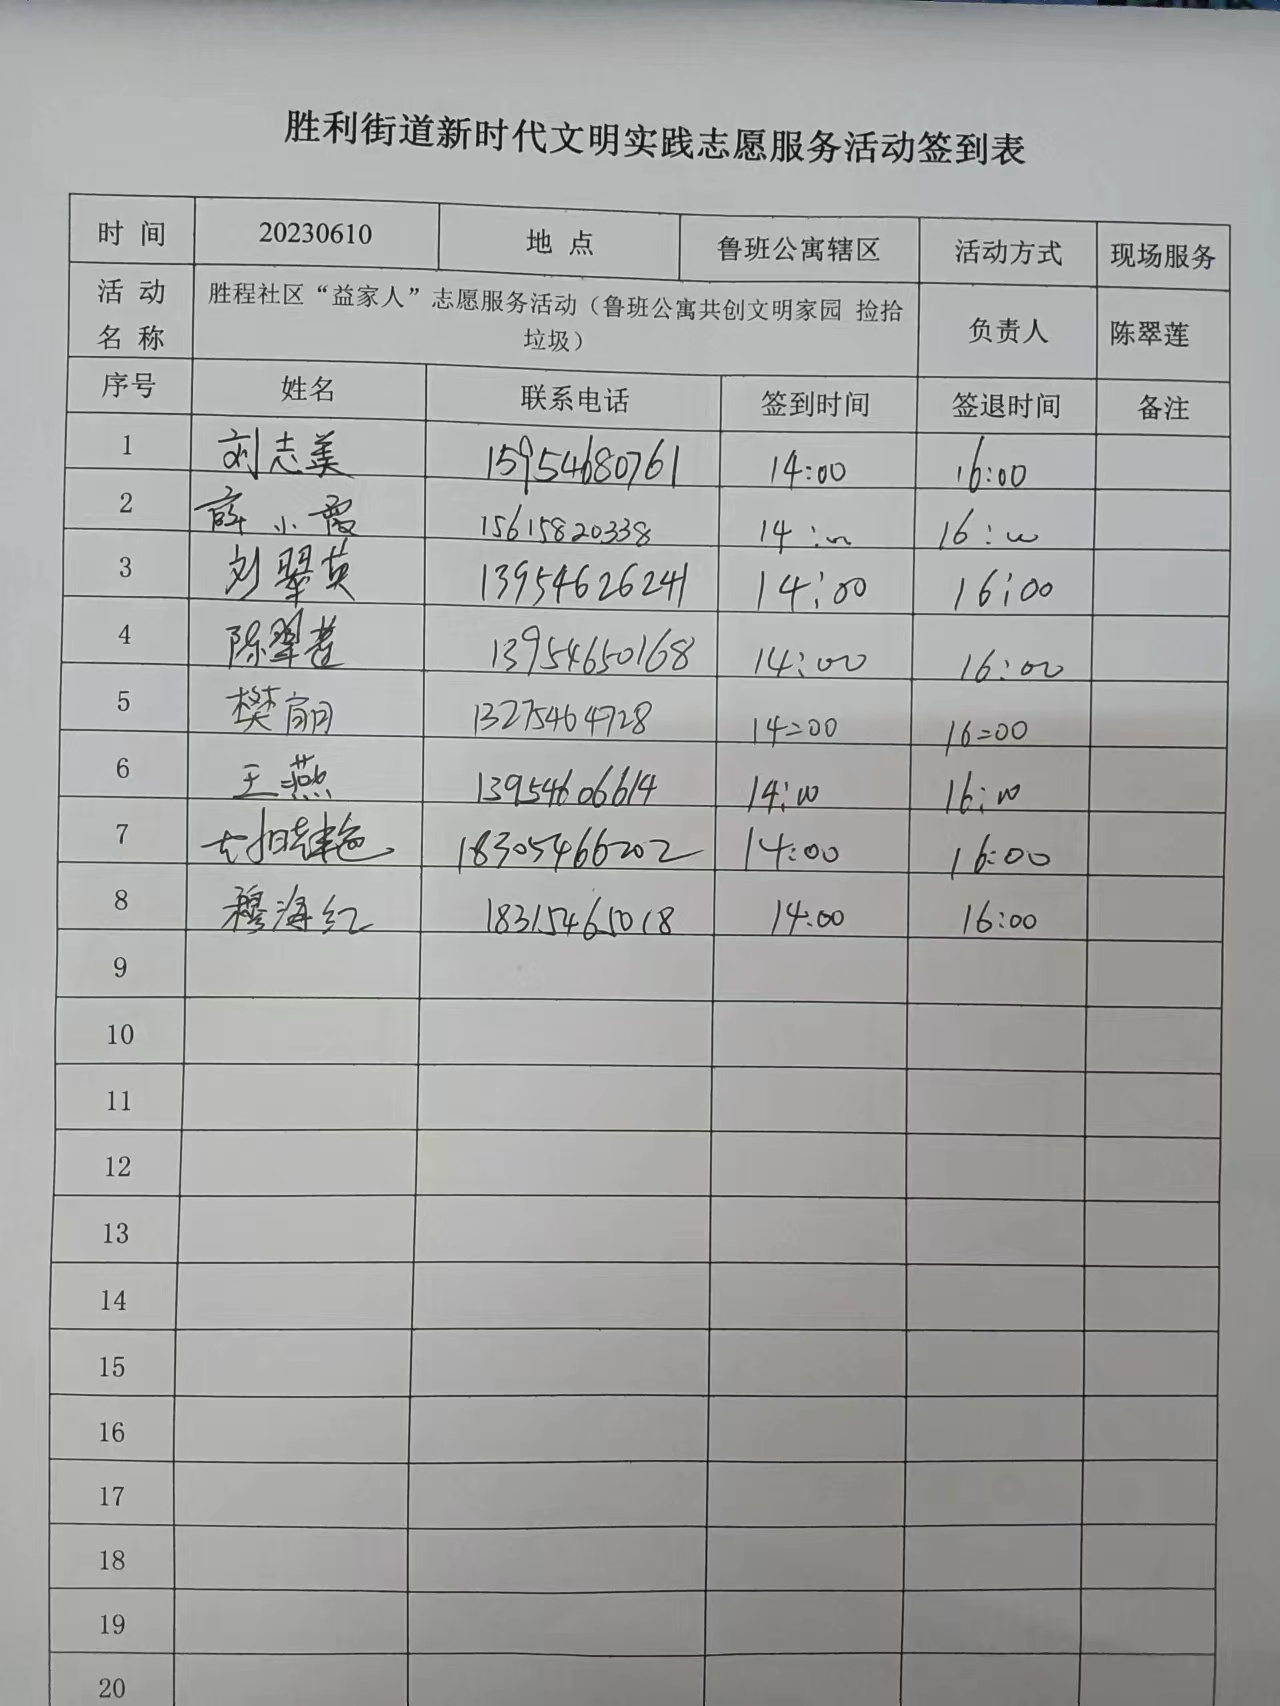 胜利街道新时代文明实践志愿服务活动签到表
时 间 20230610 地 点 鲁班公寓辖区 活动方式 现场服务
活 动 名 称 胜程社区“益家人”志愿服务活动（鲁班公寓共创文明家园 捡拾 负责人 陈翠莲
垃圾）
序号 姓名 联系电话 签到时间 签退时间 备注
1 刘志美 15954680761 14:00 16:00
2 薛小霞 15615820338 14:00 16:00
3 刘翠英 13954626241 14:00 16:00
4 陈翠莲 13954650168 14:00 16:00
5 樊丽 13275464728 14:00 16:00
6 王燕 13954606614 14:00 16:00
7 18305466202 14:00 16:00
8 穆海红 18315465018 14:00 16:00
9
10
11
12
13
14
15
16
17
18
19
20